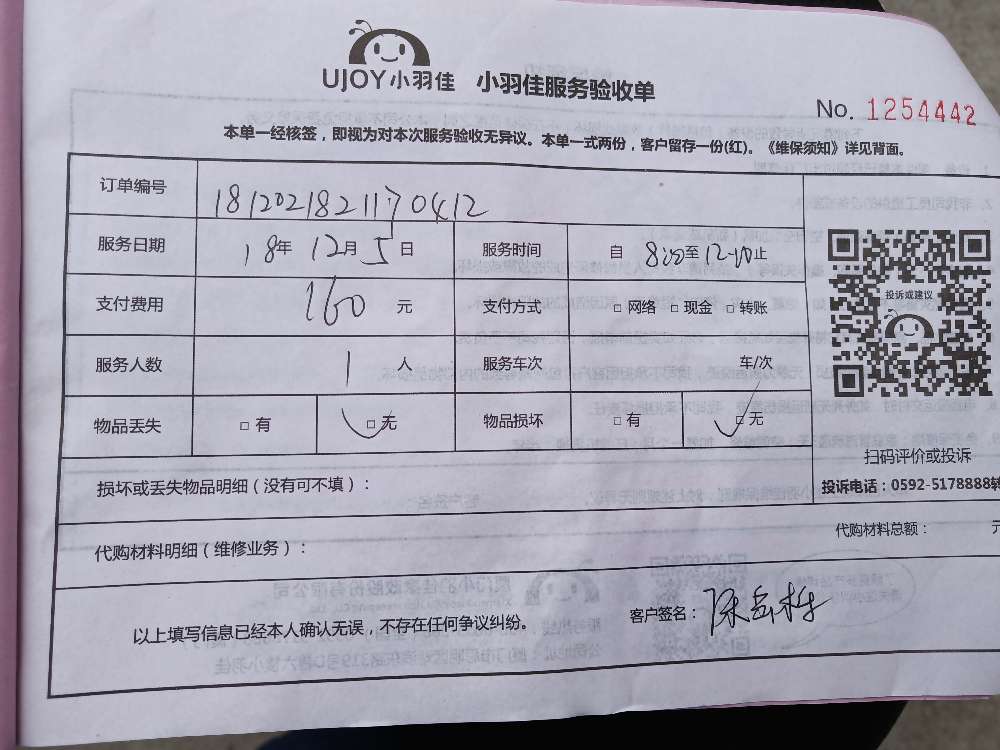 UJOY小羽佳 小羽佳服务验收单
No. 1254442
本单一经核签，即视为对本次服务验收无异议。本单一式两份，客户留存一份(红)。《维保须知》详见背面。
订单编号 181202182117 0412
服务日期 18年 12月 5日 服务时间 自 8:00至 12:00止
支付费用 160 元 支付方式 □ 网络 □ 现金 □ 转账
服务人数 1 人 服务车次 车/次
物品丢失 □ 有 □ 无 物品损坏 □ 有 □ 无
投诉或建议
扫码评价或投诉
投诉电话：0592-5178888转
损坏或丢失物品明细（没有可不填）：
代购材料明细（维修业务）： 代购材料总额： 元
以上填写信息已经本人确认无误，不存在任何争议纠纷。 客户签名：